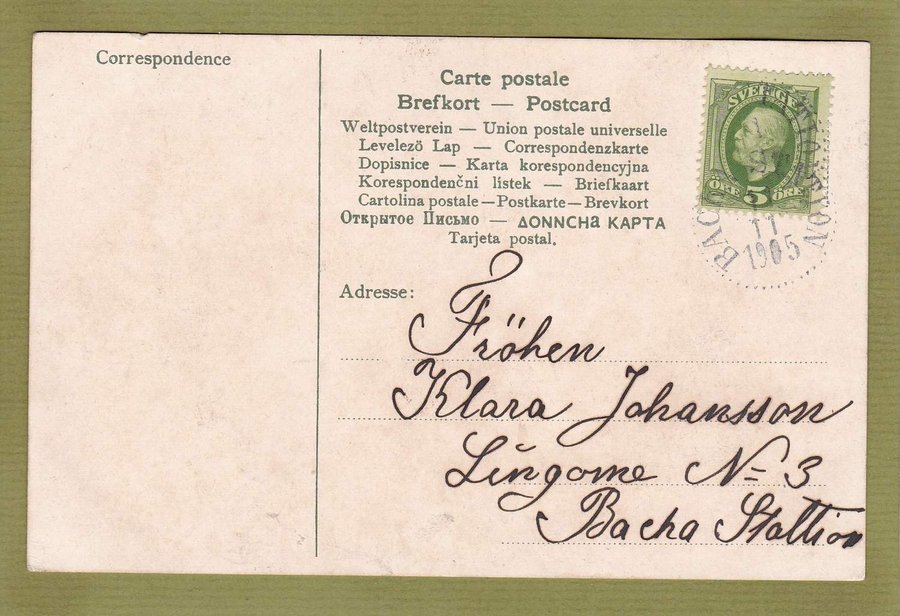 Correspondence
Carte postale
Brefkort — Postcard
Weltpostverein — Union postale universelle
Levelező Lap — Correspondenzkarte
Dopisnice — Karta korespondencyjna
Korespondenčni lístek — Briefkaart
Cartolina postale — Postkarte — Brevkort
Открытое Письмо — ΔΟΝΝCHa КАРТА
Tarjeta postal.
SVERIGE
ÖRE 5 ÖRE
11
1905
Adresse:
Fröhen
Klara Johansson
Lingome N= 3
Bacha Stattion